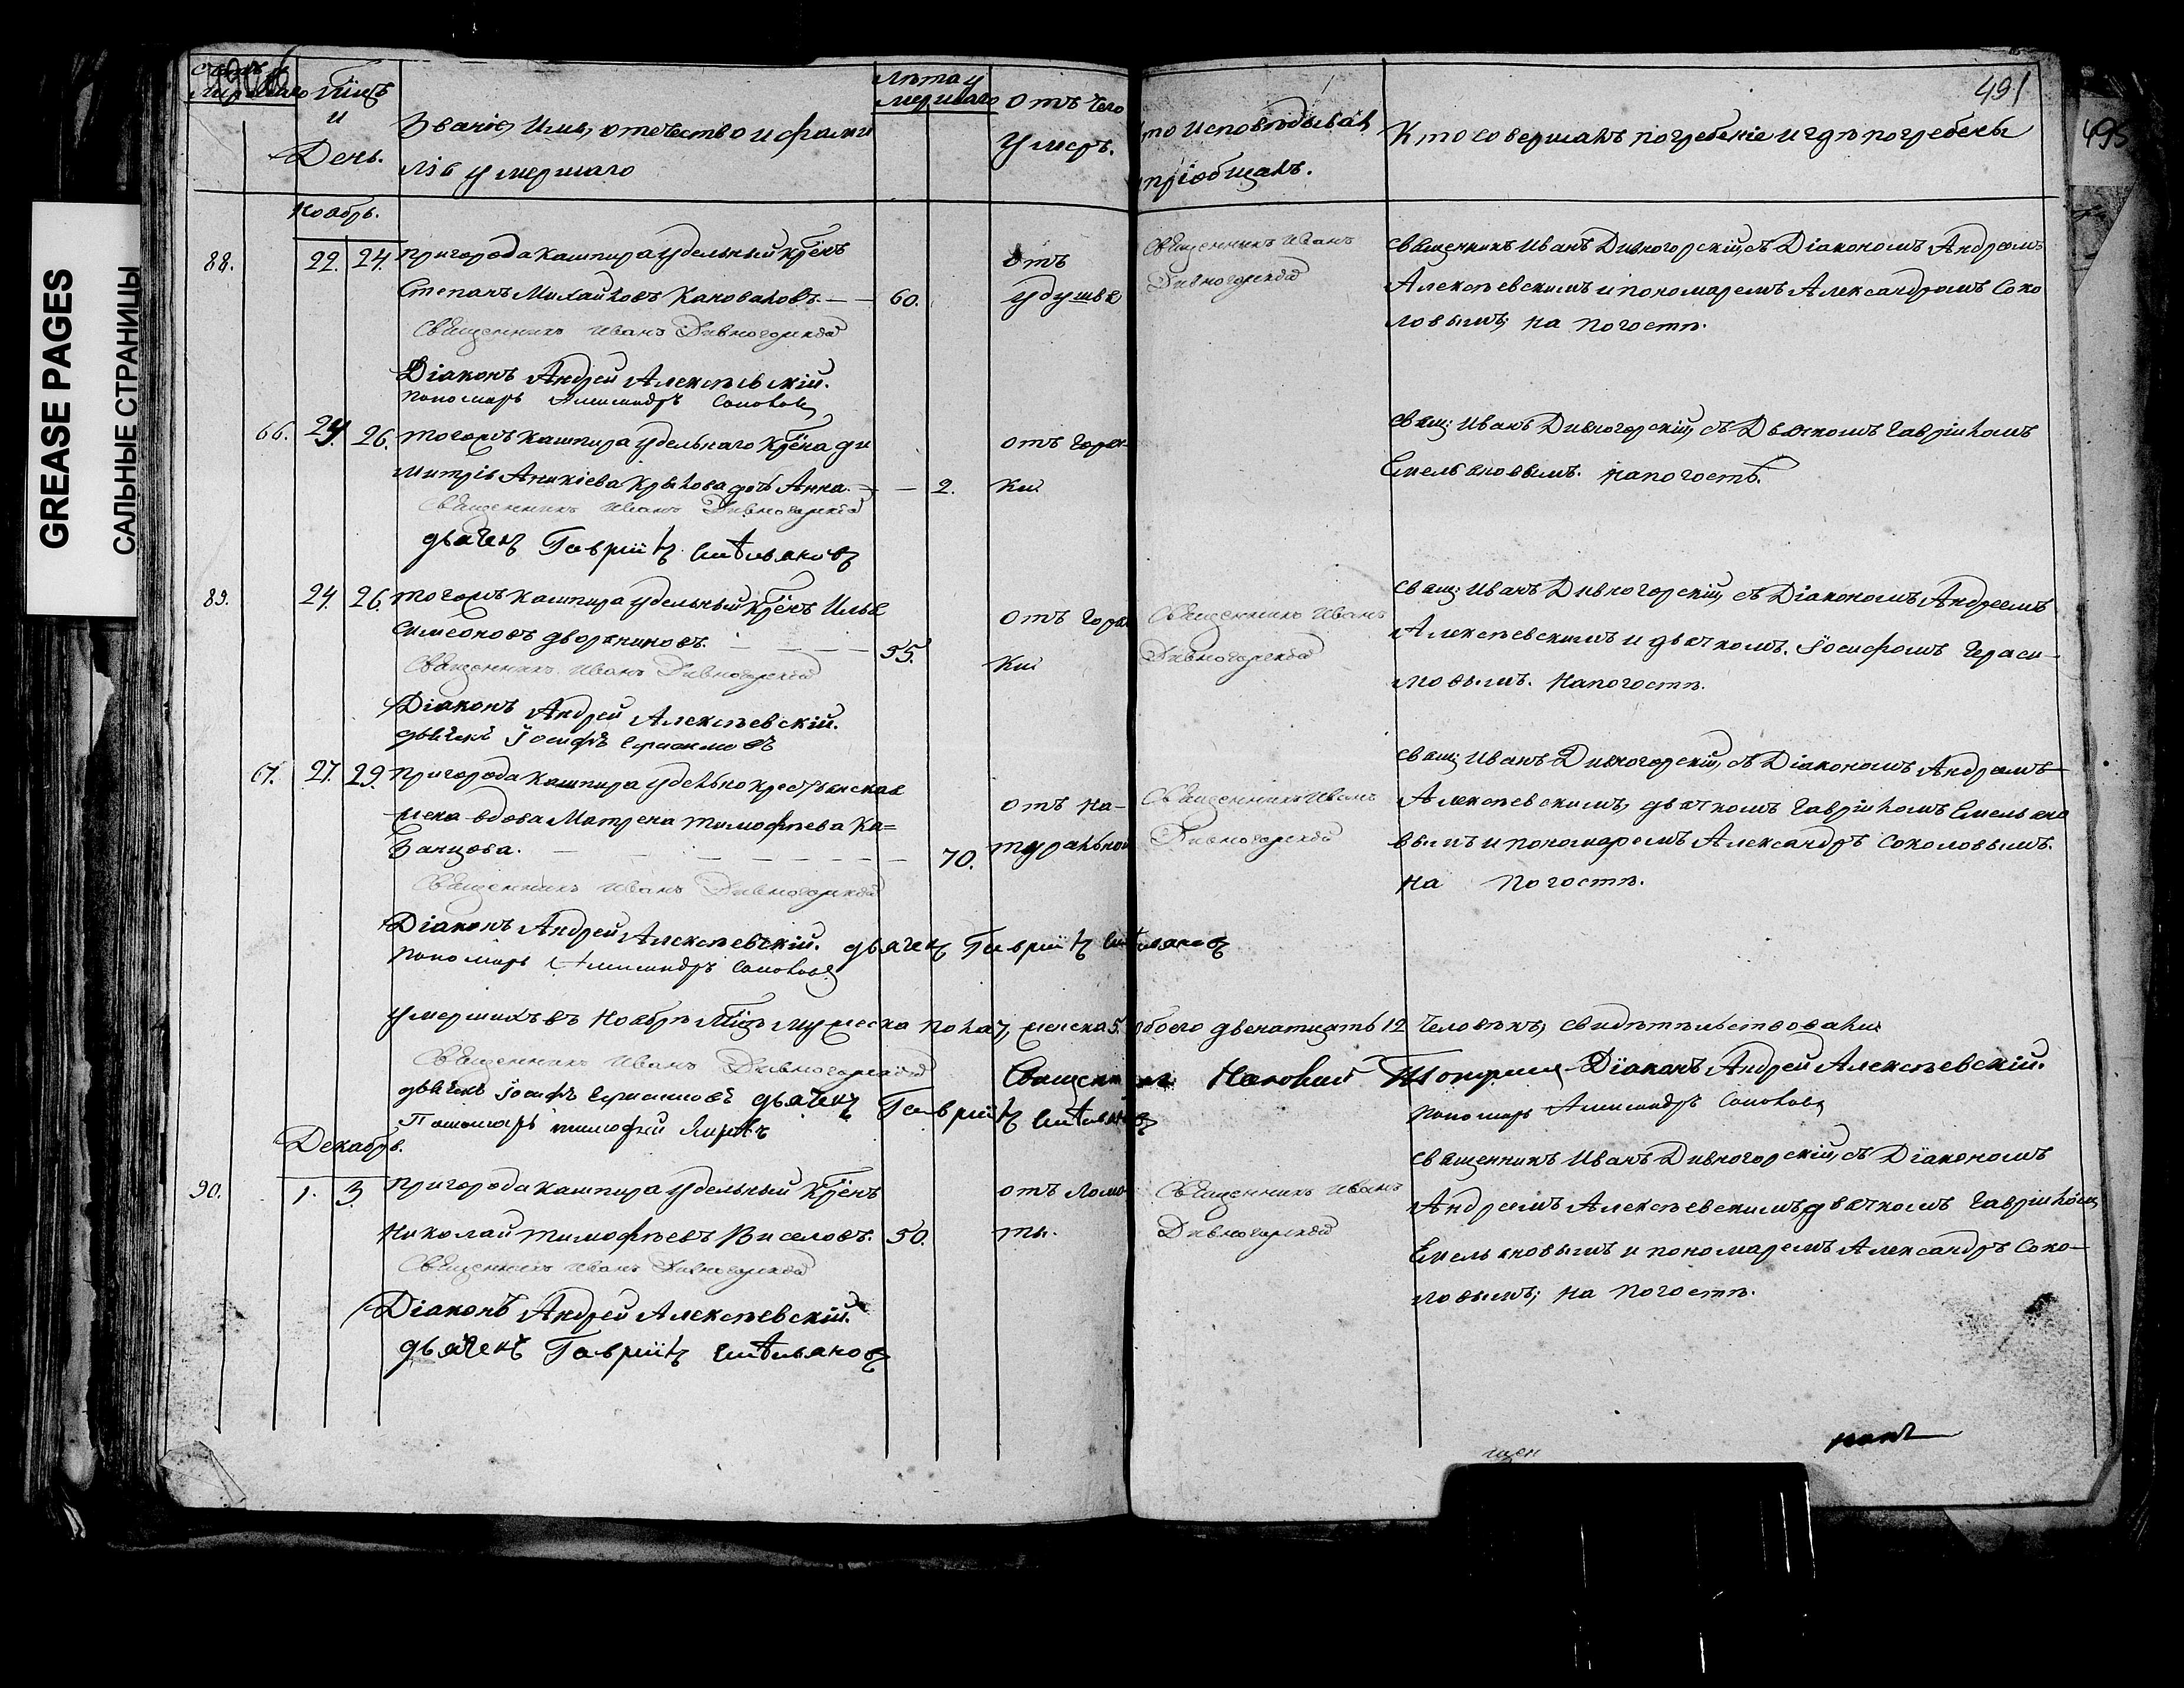 GREASE PAGES
САЛЬНЫЕ СТРАНИЦЫ
491
495
Счетъ
Мѣцъ
и
День.
Званіе, Имя, отечество и фами
лія умершаго
Лѣта у
мершаго
Отъ чего
умеръ.
Кто исповѣдывалъ
и пріобщалъ.
Кто совершалъ погребеніе и гдѣ погребены
Ноябрь.
88. 22. 24. Пригорода Кашпира удельный Кр͠ен͠ъ
Степанъ Михайловъ Коноваловъ. — — 60.
отъ
удушья
Священникъ Иванъ
Дивногорскій
Священникъ Иванъ Дивногорскій, съ Діакономъ Андреемъ
Алексѣевскимъ и пономаремъ Александромъ Соко
ловымъ; на погостѣ.
Священникъ Иванъ Дивногорскій
Діаконъ Андрей Алексѣевскій.
пономарь Александръ Соколовъ
66. 24. 26. Того жъ Кашпира удельнаго Кр͠ена Ди
митрія Аникіева Крылова дочь Анна. — — 2.
отъ горяч-
ки
Свящ: Иванъ Дивногорскій, съ Дьячкомъ Гавріиломъ
Емельяновымъ. на погостѣ.
Священникъ Иванъ Дивногорскій
дьячекъ Гавріилъ Емельяновъ
89. 24. 26. Того жъ Кашпира удельный Кр͠енъ Илья
Симеоновъ Дворяниновъ. — — — — 55.
отъ горяч
ки
Священникъ Иванъ
Дивногорскій
Свящ: Иванъ Дивногорскій, съ Діакономъ Андреемъ
Алексѣевскимъ и дьячкомъ Іосифомъ Гераси-
мовымъ. на погостѣ.
Священникъ Иванъ Дивногорскій
Діаконъ Андрей Алексѣевскій.
дьячекъ Іосифъ Герасимовъ
67. 27. 29. Пригорода Кашпира удельно крестьянская
женка вдова Матрена Тимофѣева Ка=
занцова. — — — — — — 70.
отъ на-
туральной
Священникъ Иванъ
Дивногорскій
Свящ: Иванъ Дивногорскій, съ Діакономъ Андреемъ
Алексѣевскимъ, дьячкомъ Гавріиломъ Емельяно
вымъ и пономаремъ Александръ Соколовымъ.
на погостѣ.
Священникъ Иванъ Дивногорскій
Діаконъ Андрей Алексѣевскій. дьячекъ Гавріилъ Емельяновъ
пономарь Александръ Соколовъ
Умершихъ въ Ноябрѣ Мѣцѣ мужеска пола 7, женска 5. обоего двенатцать 12 человѣкъ, свидѣтельствовали
Священникъ Иванъ Дивногорскій
Священникъ
Діаконъ Андрей Алексѣевскій.
дьячекъ Іосифъ Герасимовъ дьячекъ Гавріилъ Емельяновъ
пономарь Александръ Соколовъ
Пономарь Тимофей
Декабрь.
90. 1. 3. Пригорода Кашпира удельный Кр͠енъ
Николай Тимофѣевъ Виселовъ. 50.
отъ ломо-
ты.
Священникъ Иванъ
Дивногорскій
Священникъ Иванъ Дивногорскій, съ Діакономъ
Андреемъ Алексѣевскимъ, дьячкомъ Гавріиломъ
Емельяновымъ и пономаремъ Александръ Соко-
ловымъ; на погостѣ.
Священникъ Иванъ Дивногорскій
Діаконъ Андрей Алексѣевскій.
дьячекъ Гавріилъ Емельяновъ